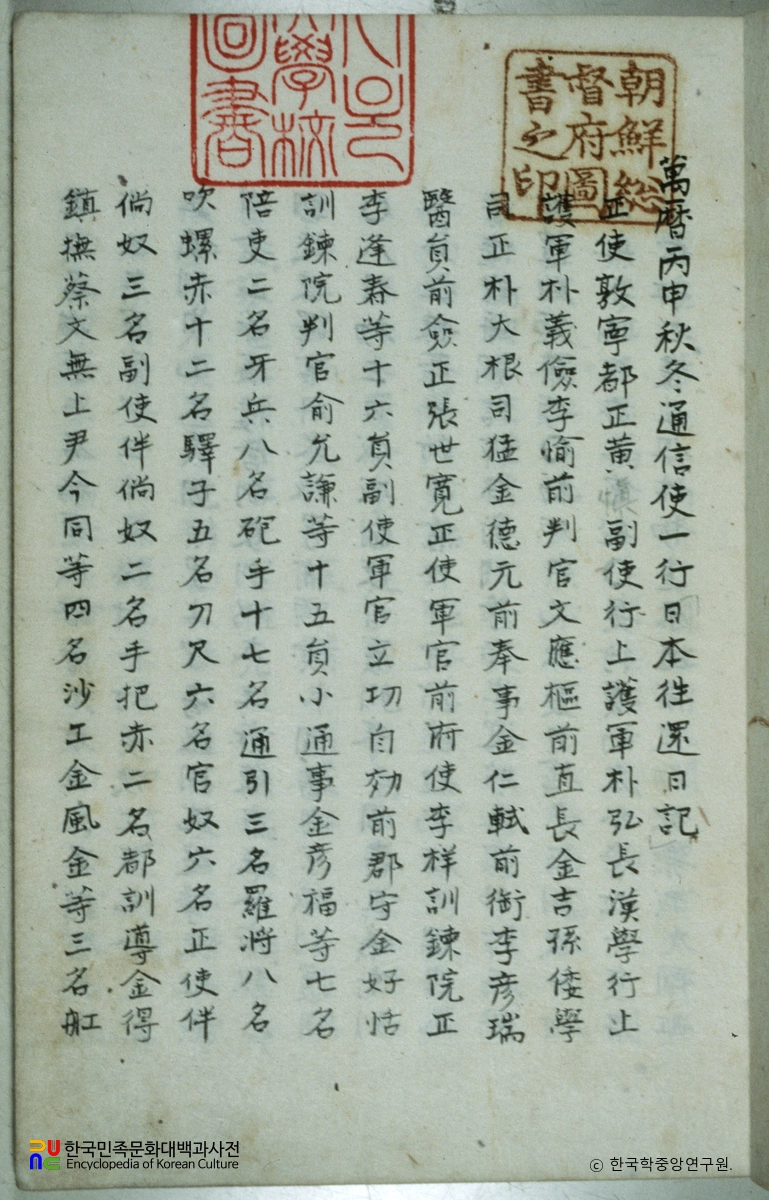 萬曆丙申秋冬通信使一行日本往還日記
正使敦寧都正黃愼副使行上護軍朴弘長漢學行上
護軍朴義儉李愉前判官文應樞前直長金吉孫倭學
司正朴大根司猛金德元前奉事金仁軾前銜李彦瑞
醫員前僉正張世寬正使軍官前府使李样訓鍊院正
李逢春等十六員副使軍官立功自效前郡守金好恬
訓鍊院判官俞允謙等十五員小通事金彦福等七名
陪吏二名牙兵八名砲手十七名通引三名羅將八名
吹螺赤十二名驛子五名刀尺六名官奴六名正使伴
倘奴三名副使伴倘奴二名手把赤二名都訓導金得
鎮撫蔡文無上尹今同等四名沙工金風金等三名舡
朝鮮總
督府圖
書之印
學校
圖書
한국민족문화대백과사전
Encyclopedia of Korean Culture
© 한국학중앙연구원.